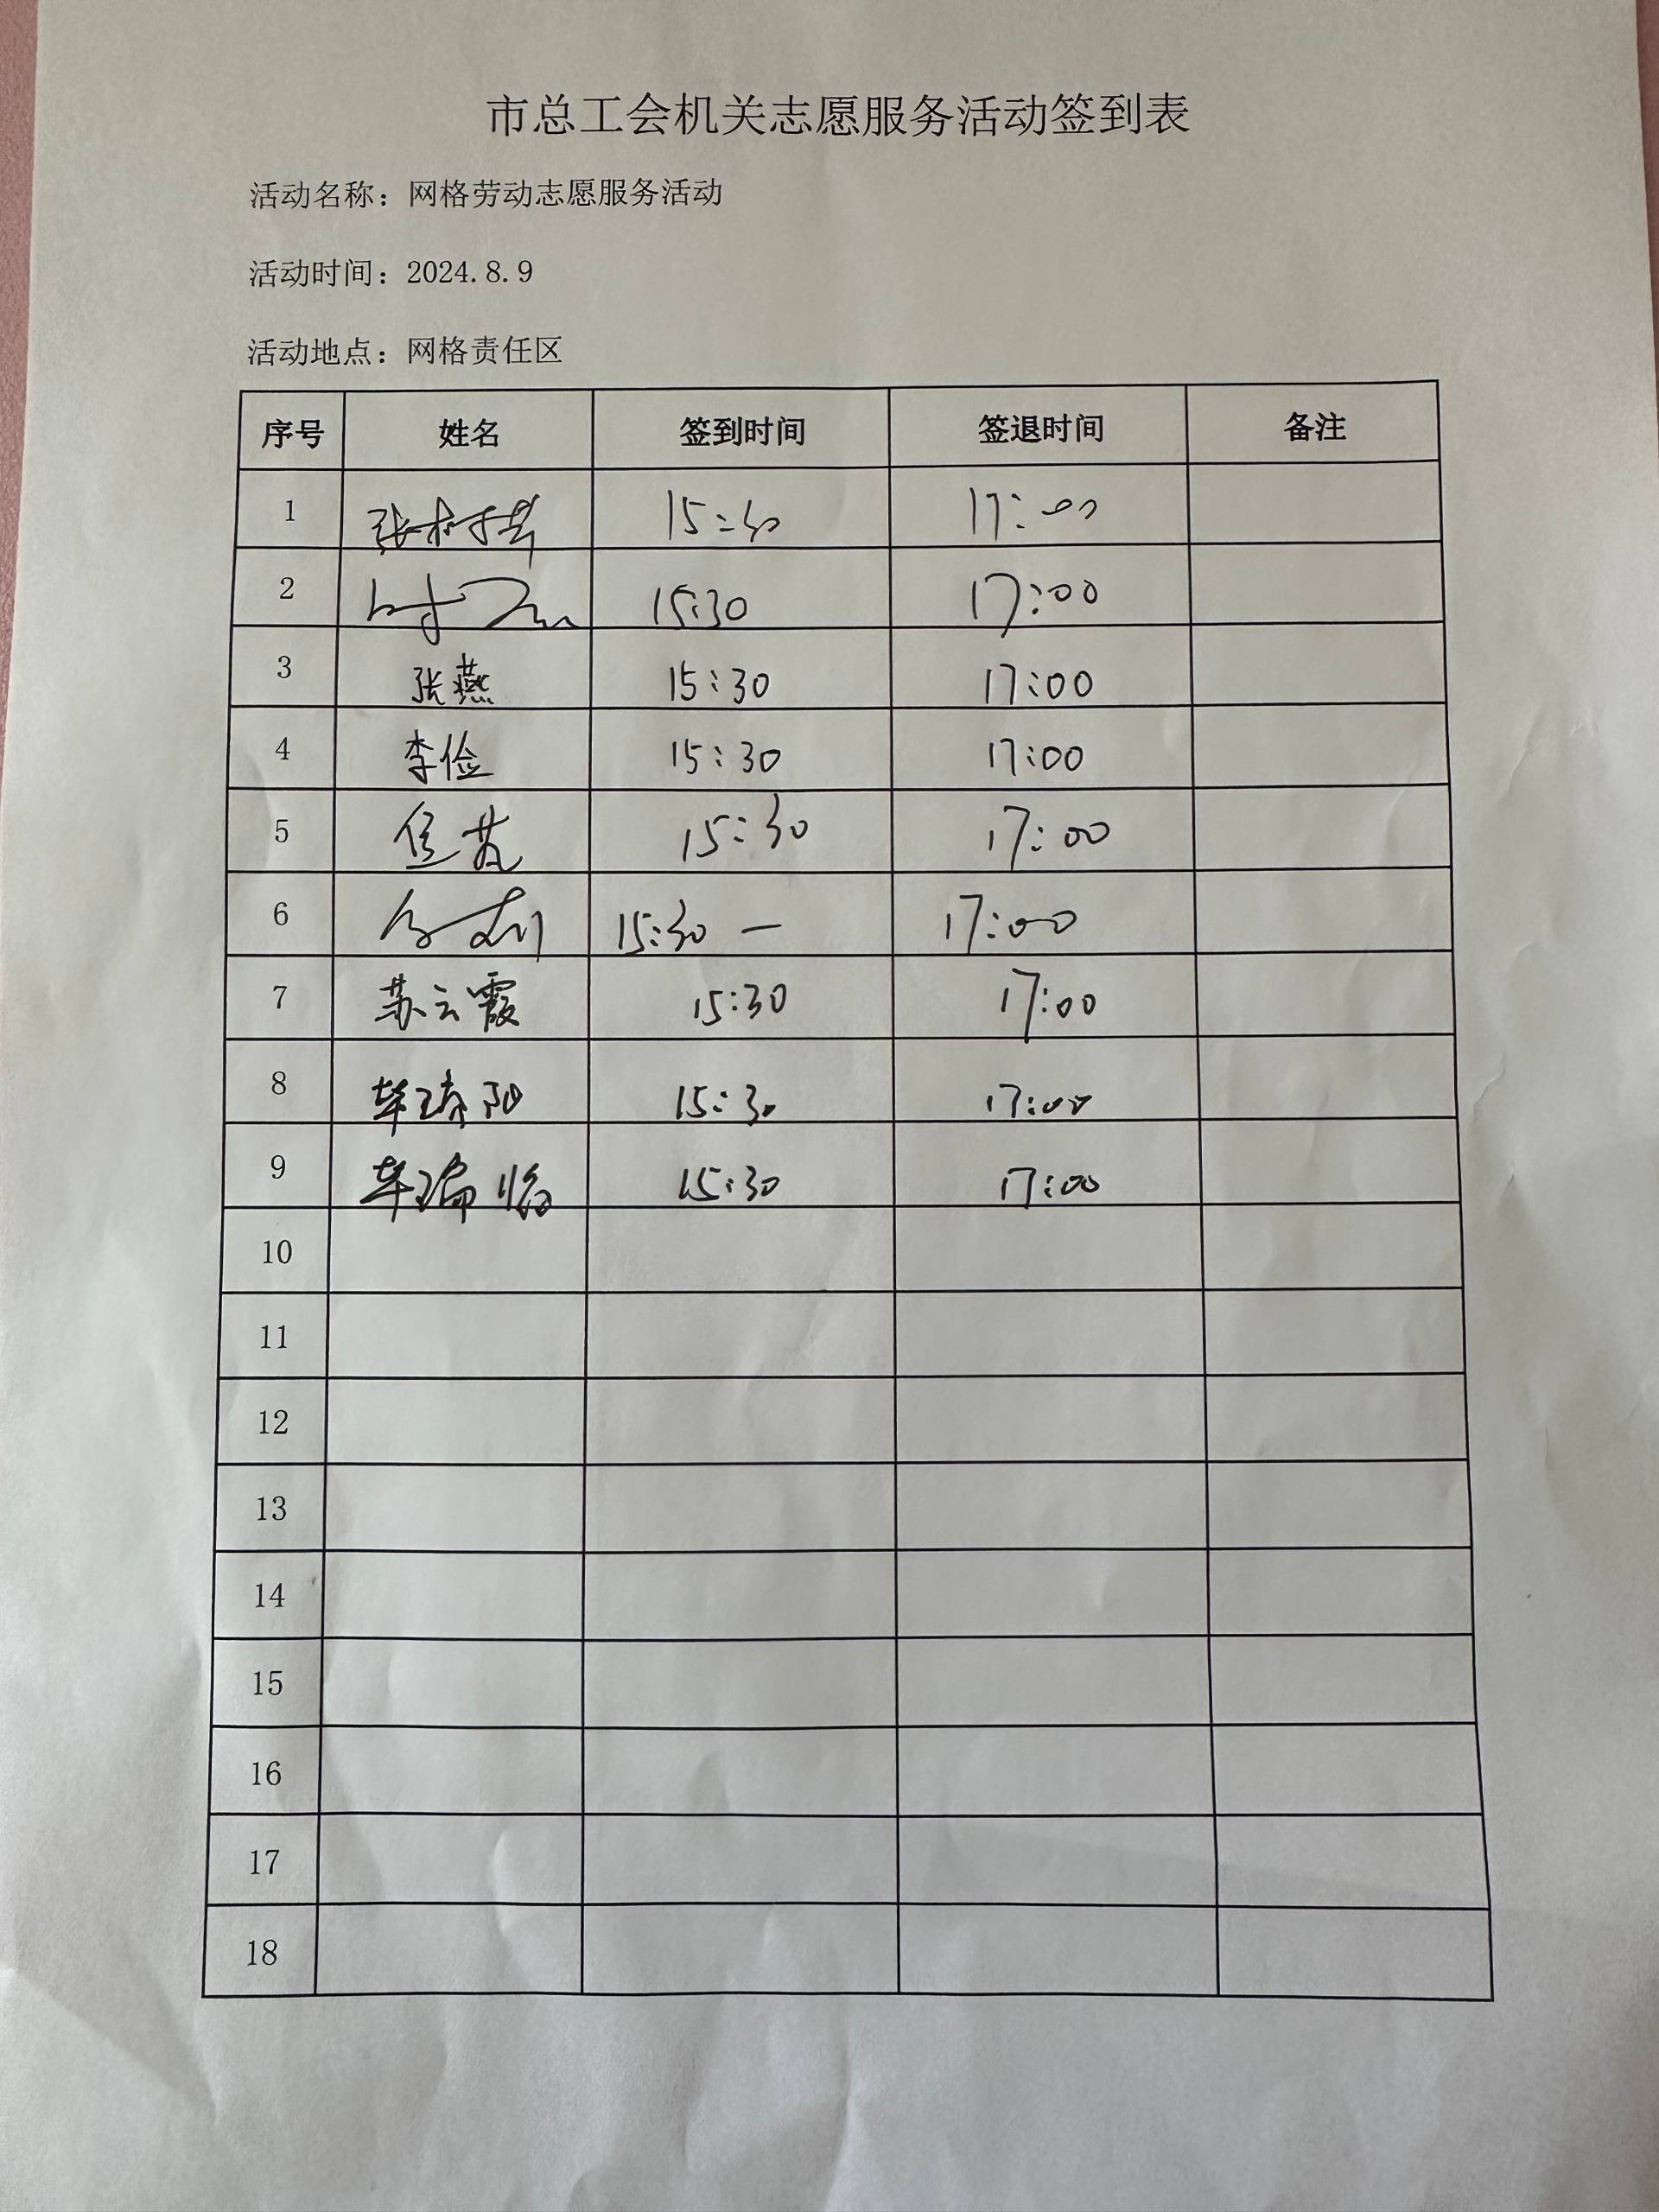 市总工会机关志愿服务活动签到表
活动名称：网格劳动志愿服务活动
活动时间：2024.8.9
活动地点：网格责任区
序号 姓名 签到时间 签退时间 备注
1 15:30 17:00
2 15:30 17:00
3 张燕 15:30 17:00
4 李俭 15:30 17:00
5 15:30 17:00
6 15:30 — 17:00
7 苏云霞 15:30 17:00
8 15:30 17:00
9 15:30 17:00
10
11
12
13
14
15
16
17
18